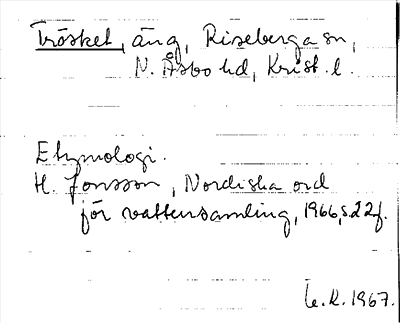 Tröskel, äng, Riseberga sn,
N. Åsbo hd, Krist. l.
Etymologi.
H. Jonsson, Nordiska ord
för vattensamling, 1966, s. 22 f.
L. R. 1967.